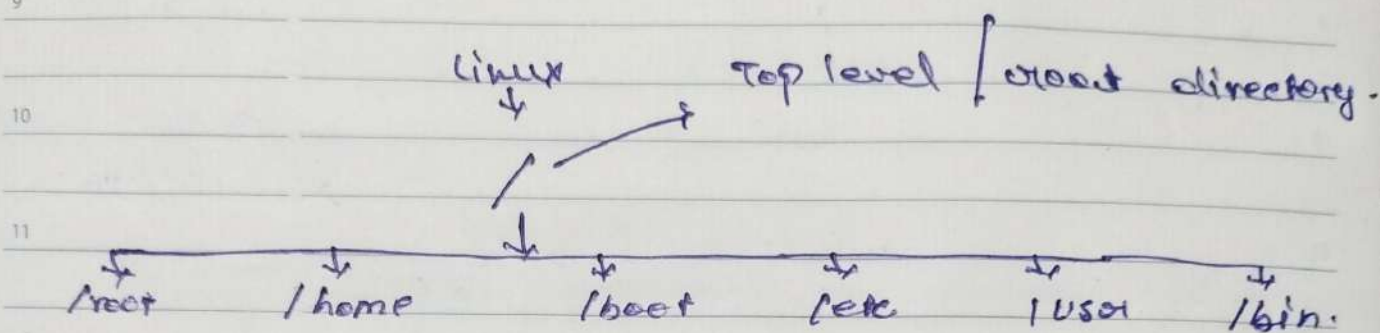 9
Linux Top level / root directory.
10
/
11
/root /home /boot /etc /usr /bin.